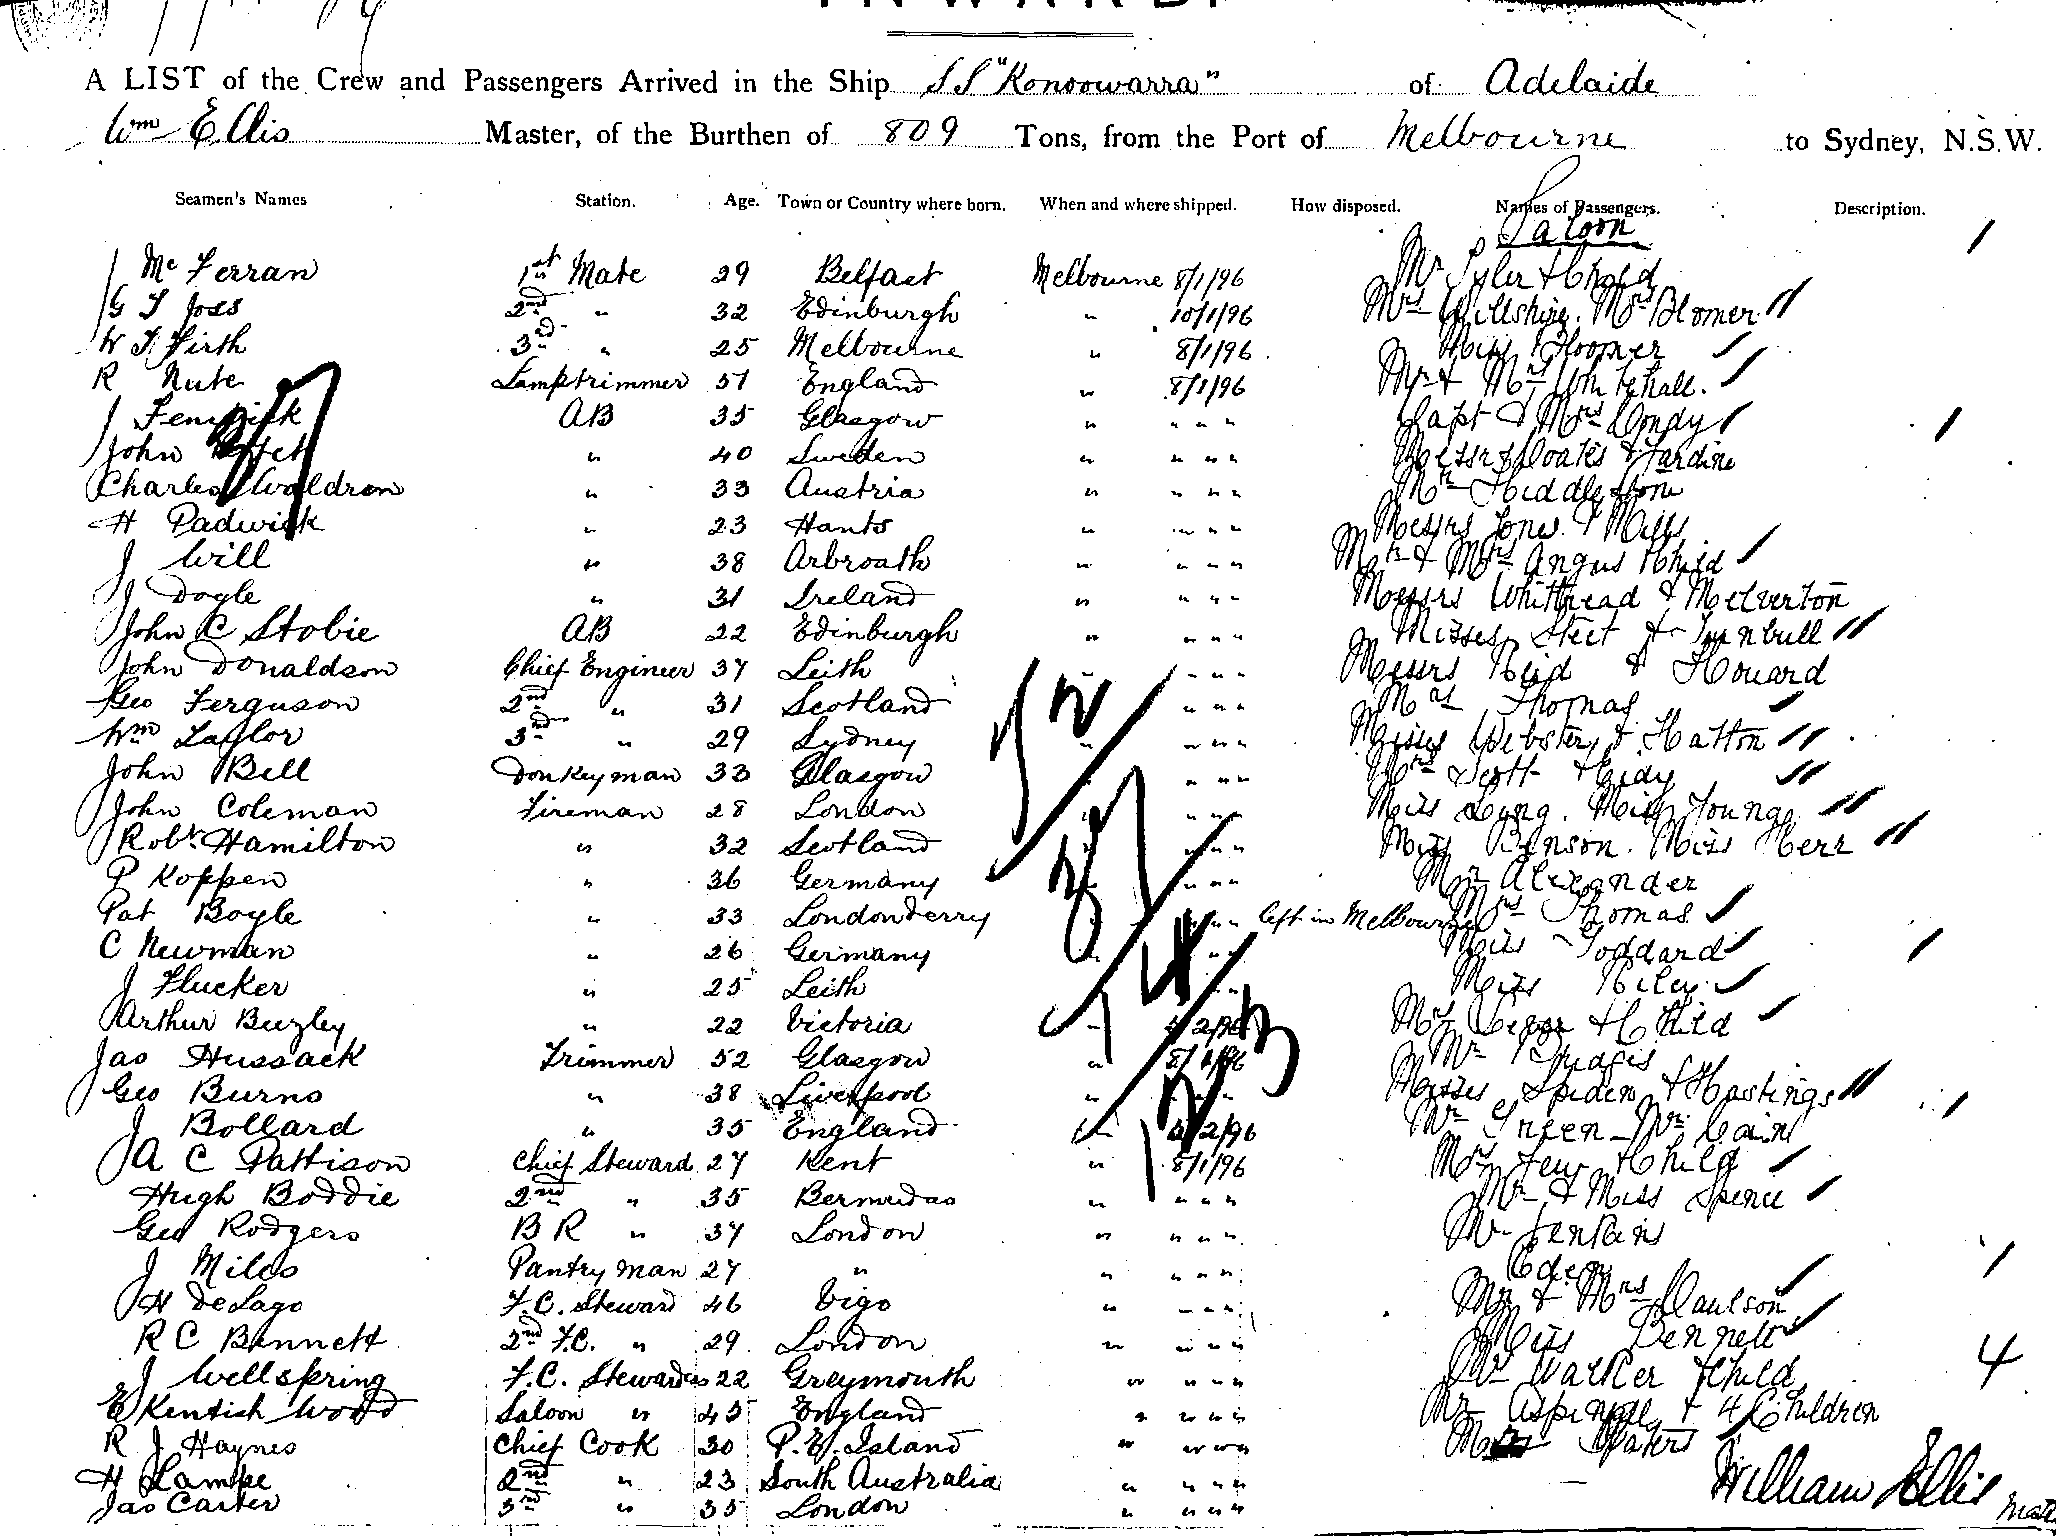 INWARD.
A LIST of the Crew and Passengers Arrived in the Ship SS "Konoowarra" of Adelaide
Wm Ellis Master, of the Burthen of 809 Tons, from the Port of Melbourne to Sydney, N.S.W.
Seamen's Names Station. Age. Town or Country where born. When and where shipped. How disposed. Names of Passengers. Description.
Saloon
J McFerran 1st Mate 29 Belfast Melbourne 8/1/96 Mr Tyler & Child
G T Joss 2nd " 32 Edinburgh " 10/1/96 Mrs Willshire. Mrs Blomer
W T Firth 3rd " 25 Melbourne " 8/1/96 Miss
R Nute Lamptrimmer 51 England " 8/1/96 Mr & Mrs Whitehall.
J Fenwick AB 35 Glasgow " " " " Capt & Mrs
John " 40 Sweden " " " " Messrs & Jardine
Charles Waldron " 33 Austria " " " " Mr Hiddlestone
H Padwick " 23 Hants " " " " Messrs Jones & Mills
J Will " 38 Arbroath " " " " Mr & Mrs Angus & Child
J Doyle " 31 Ireland " " " " Messrs Whithread & Melverton
John C Stobie AB 22 Edinburgh " " " " Misses Steet & Turnbull
John Donaldson Chief Engineer 37 Leith " " " " Messrs Reid & Howard
Geo Ferguson 2nd " 31 Scotland " " " Mrs Thomas
Wm Taylor 3rd " 29 Sydney " " " " Misses Webster & Hatton
John Bell Donkeyman 33 Glasgow " " " Mrs Scott &
John Coleman Fireman 28 London " " " " Miss Long. Miss Young
Robt Hamilton " 32 Scotland " " " Miss Benson. Miss Kerr
P Koppen " 36 Germany " " " " Mr Alexander
Pat Boyle " 33 Londonderry " " " left in Melbourne Mrs Thomas
C Newman " 26 Germany " " " Miss Goddard
J Flucker " 25 Leith " " Miss Riley
Arthur Buzley " 22 Victoria " 4/2/96 Mrs & Child
Jas Hussack Trimmer 52 Glasgow " 8/1/96 Mr
Geo Burns " 38 Liverpool " " Misses Spiden & Hastings
J Bollard " 35 England " 4/2/96 Mr Green Mr Cain
A C Pattison Chief Steward 27 Kent " 8/1/96 Mrs Few & Child
Hugh Boddie 2nd " 35 Bermudas " " " " Mr & Miss Spence
Geo Rodgers B R " 37 London " " " " Mr Jenkins
J Miles Pantryman 27 " " " " " Eden
H DeLago F.C. Steward 46 Vigo " " " " Mr & Mrs Paulson
R C Bennett 2nd F.C. " 29 London " " " " Miss Bennett
J Wellspring F.C. Stewardess 22 Greymouth " " " " Mr Walker & Child 4
E Kentish Wood Saloon " 45 England " " " " Mr Aspinall & 4 Children
R J Haynes Chief Cook 30 P.E. Island " " " " Waters
H Lampe 2nd " 23 South Australia " " " "
Jas Carter 3rd " 35 London " " " "
William Ellis